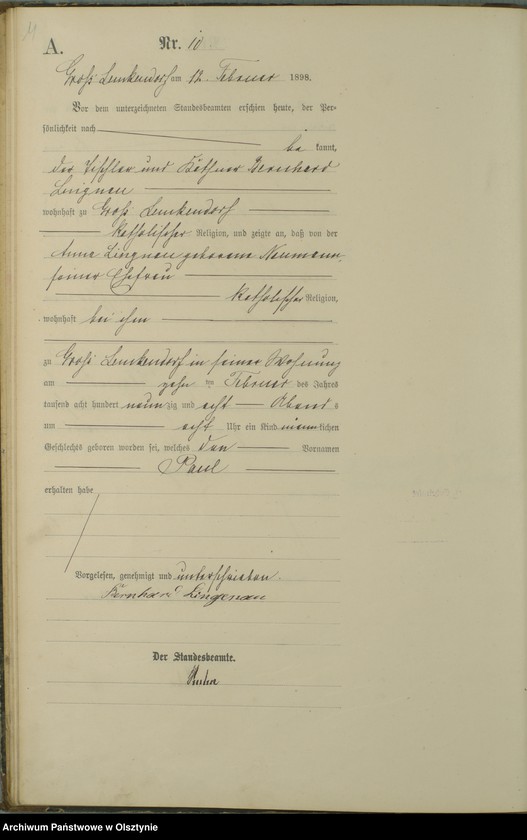 A.
Nr. 10
Groß Lemkendorf am 12. Februar 1898.
Vor dem unterzeichneten Standesbeamten erschien heute, der Per-
sönlichkeit nach
be kannt,
der Tischler und Käthner Bernhard
Lingnau
wohnhaft zu Groß Lemkendorf
katholischer Religion, und zeigte an, daß von der
Anna Lingnau geborene Neumann,
seiner Ehefrau
katholischer Religion,
wohnhaft bei ihm
zu Groß Lemkendorf in seiner Wohnung
am zehn ten Februar des Jahres
tausend acht hundert neun zig und acht Abend s
um acht Uhr ein Kind männlichen
Geschlechts geboren worden sei, welches den Vornamen
Paul
erhalten habe
Vorgelesen, genehmigt und unterschrieben
Bernhard Lingnau
Der Standesbeamte.
Archiwum Państwowe w Olsztynie